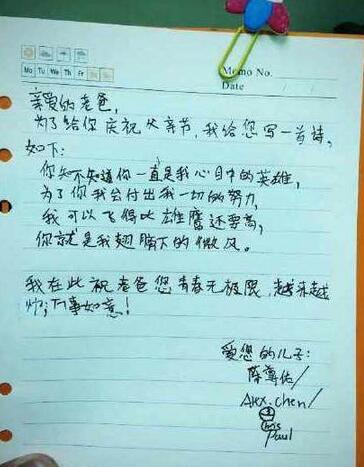 Mo Tu We Th Fr
Memo No.
Date
亲爱的老爸,
为了给你庆祝父亲节,我给您写一首诗,
如下:
你知不知道你一直是我心目中的英雄,
为了你我会付出我一切的努力,
我可以飞得比雄鹰还要高,
你就是我翅膀下的微风。
我在此祝老爸您青春无极限,越来越
帅;万事如意!
爱您的儿子:
陈尊佑/
Alex.chen/
Chris
Paul